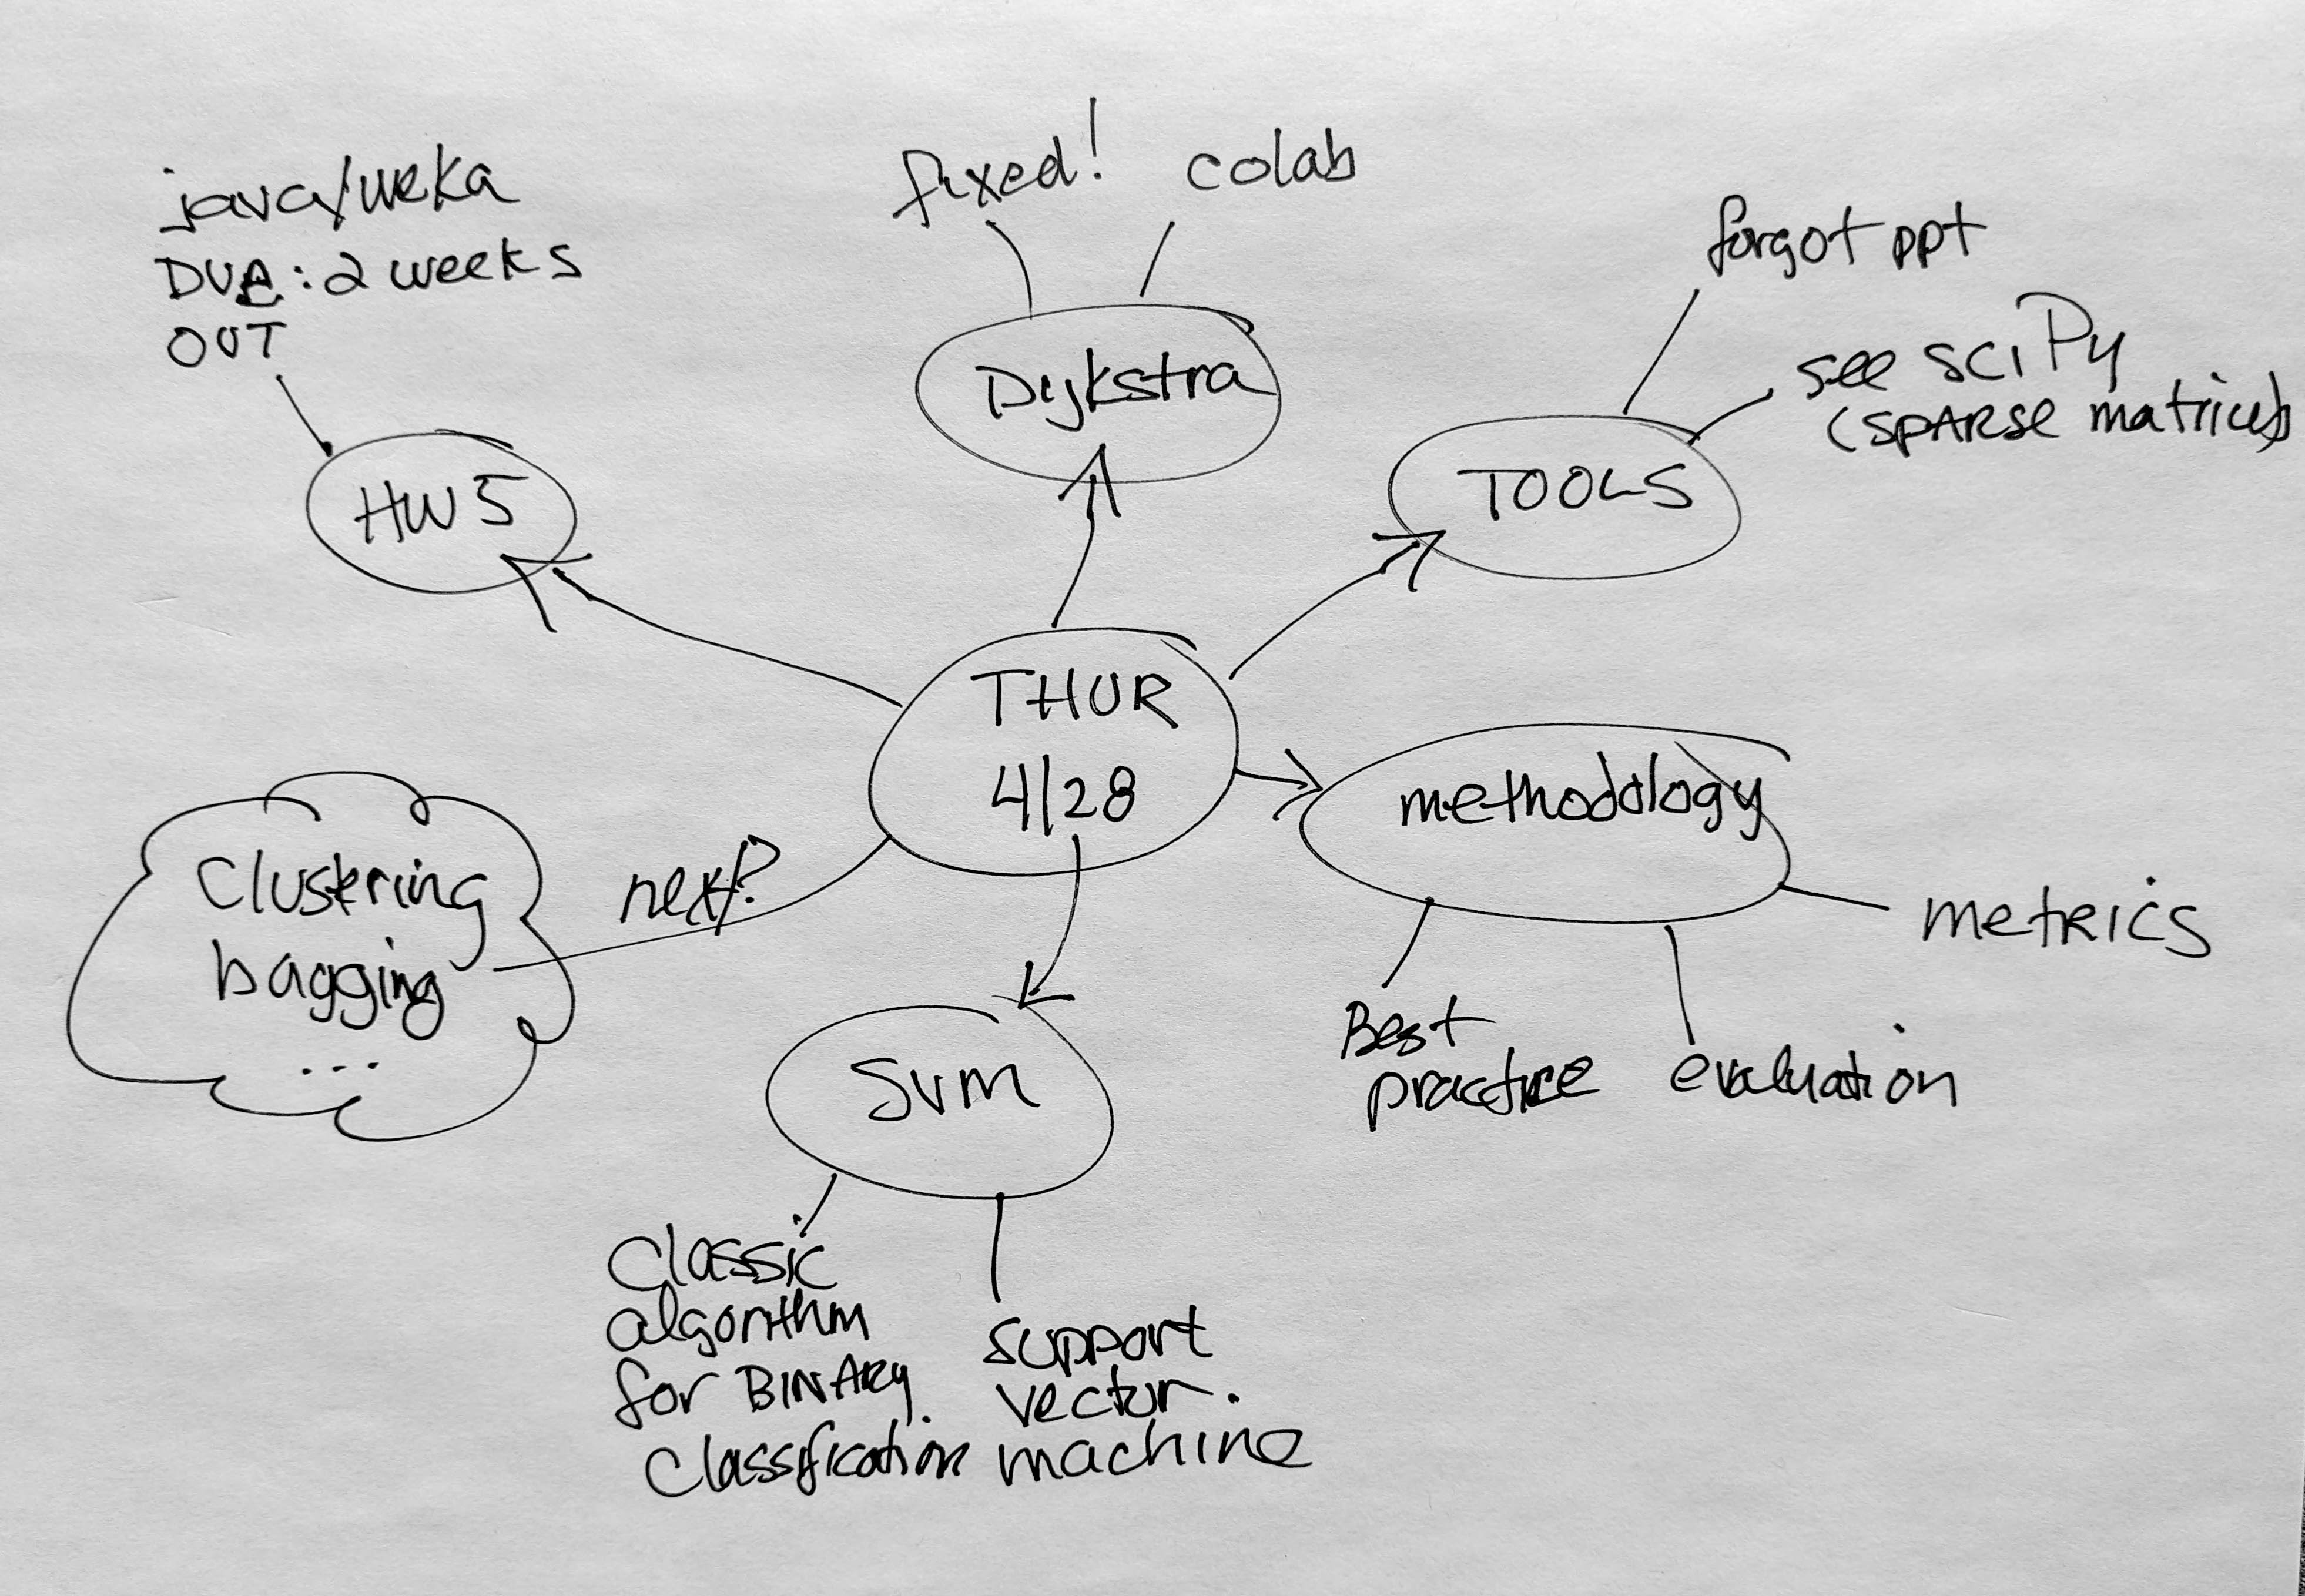 java/weka
DUE: 2 weeks
OUT
HW5
fixed!
colab
Dijkstra
forgot ppt
see sciPy
(SPARSE matrices)
TOOLS
THUR
4/28
methodology
metrics
Best
practice
evaluation
next?
Clustering
bagging
...
SVM
Classic
algorithm
for BINARY
Classification
support
vector
machine